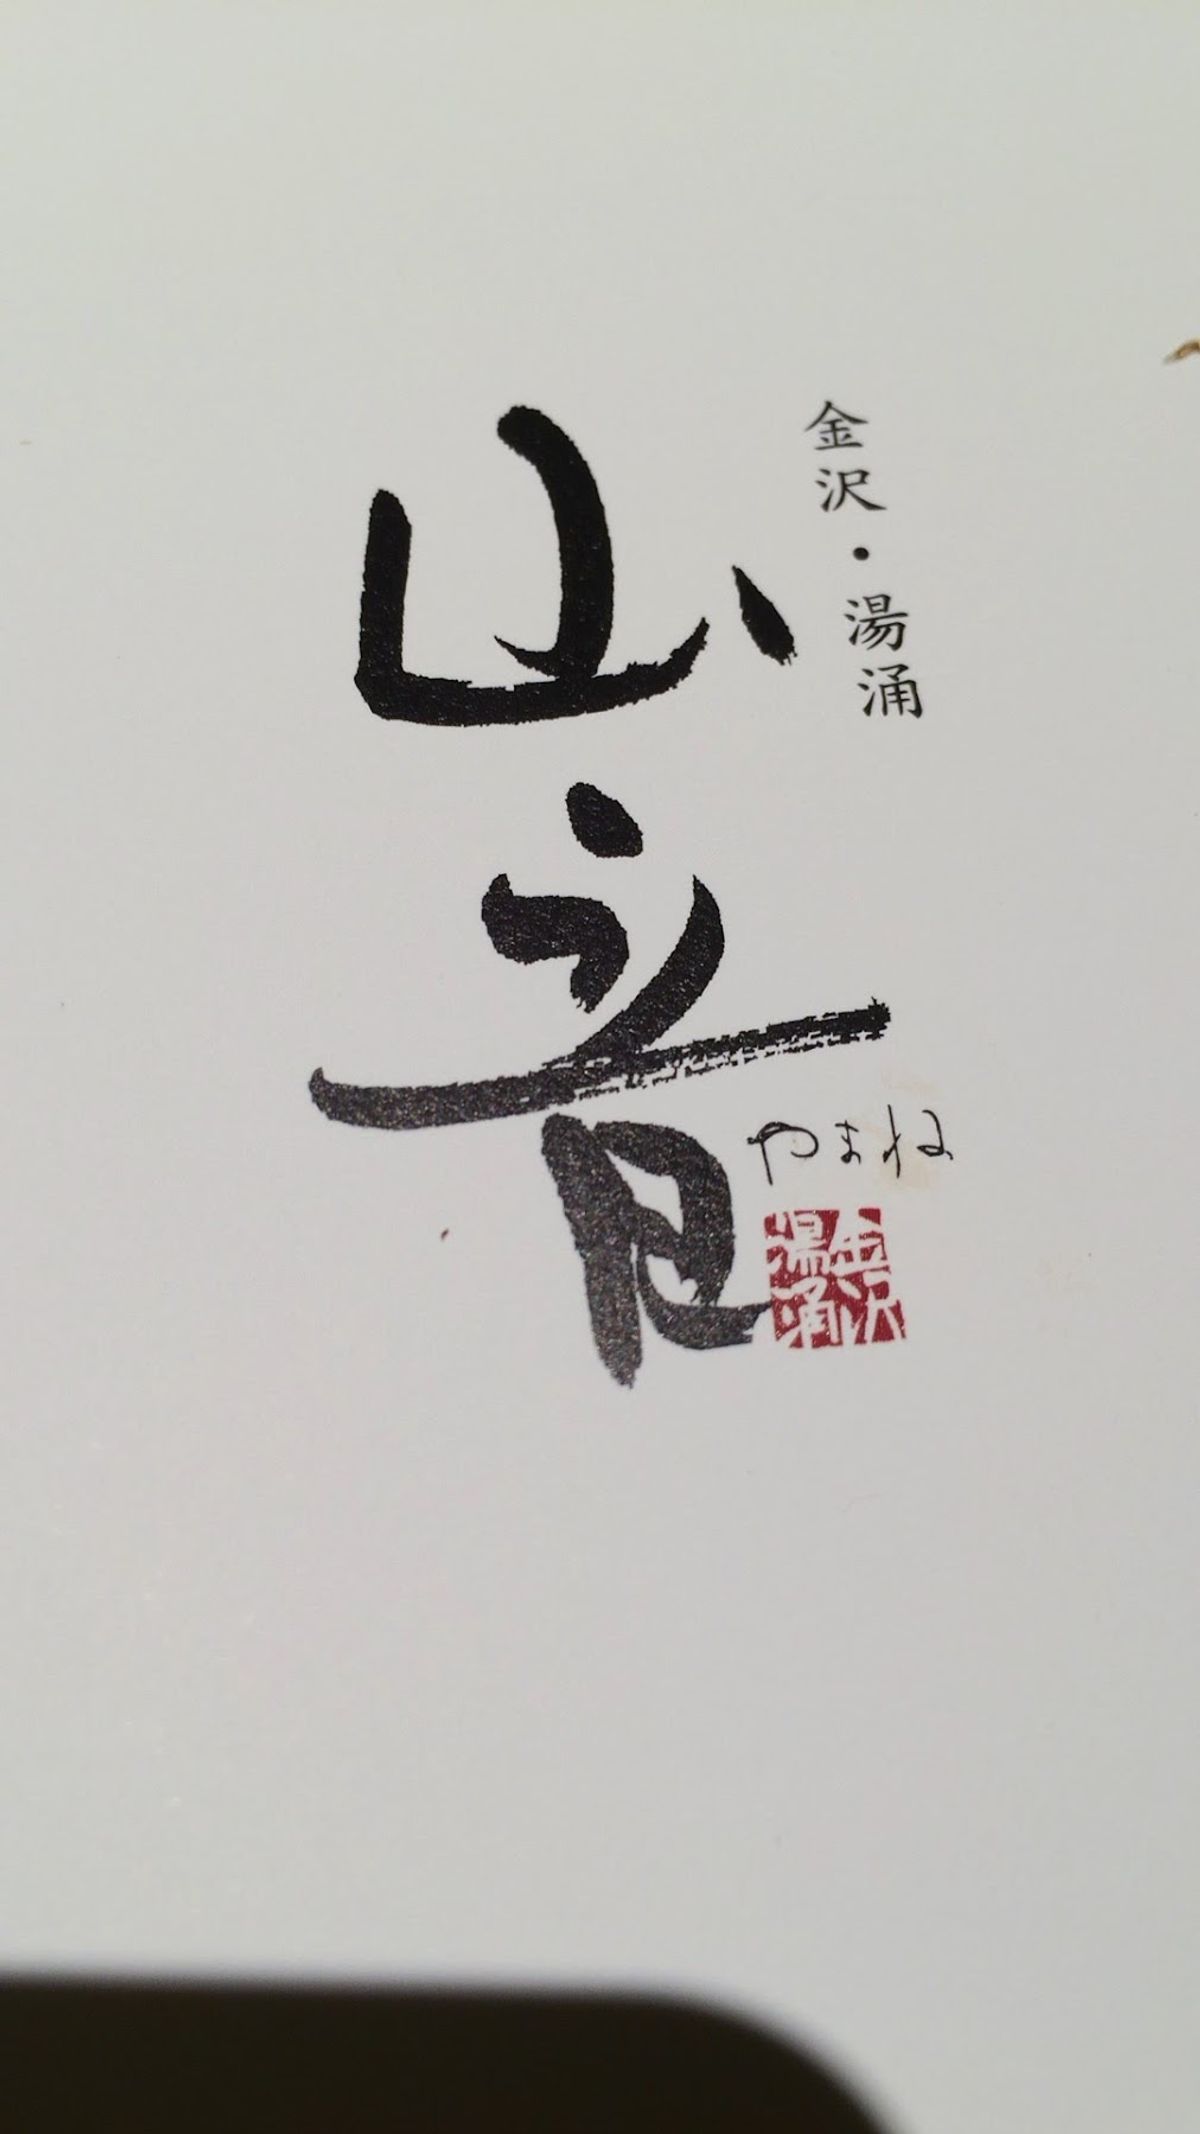 金沢・湯涌
山音
やまね
金沢
湯涌